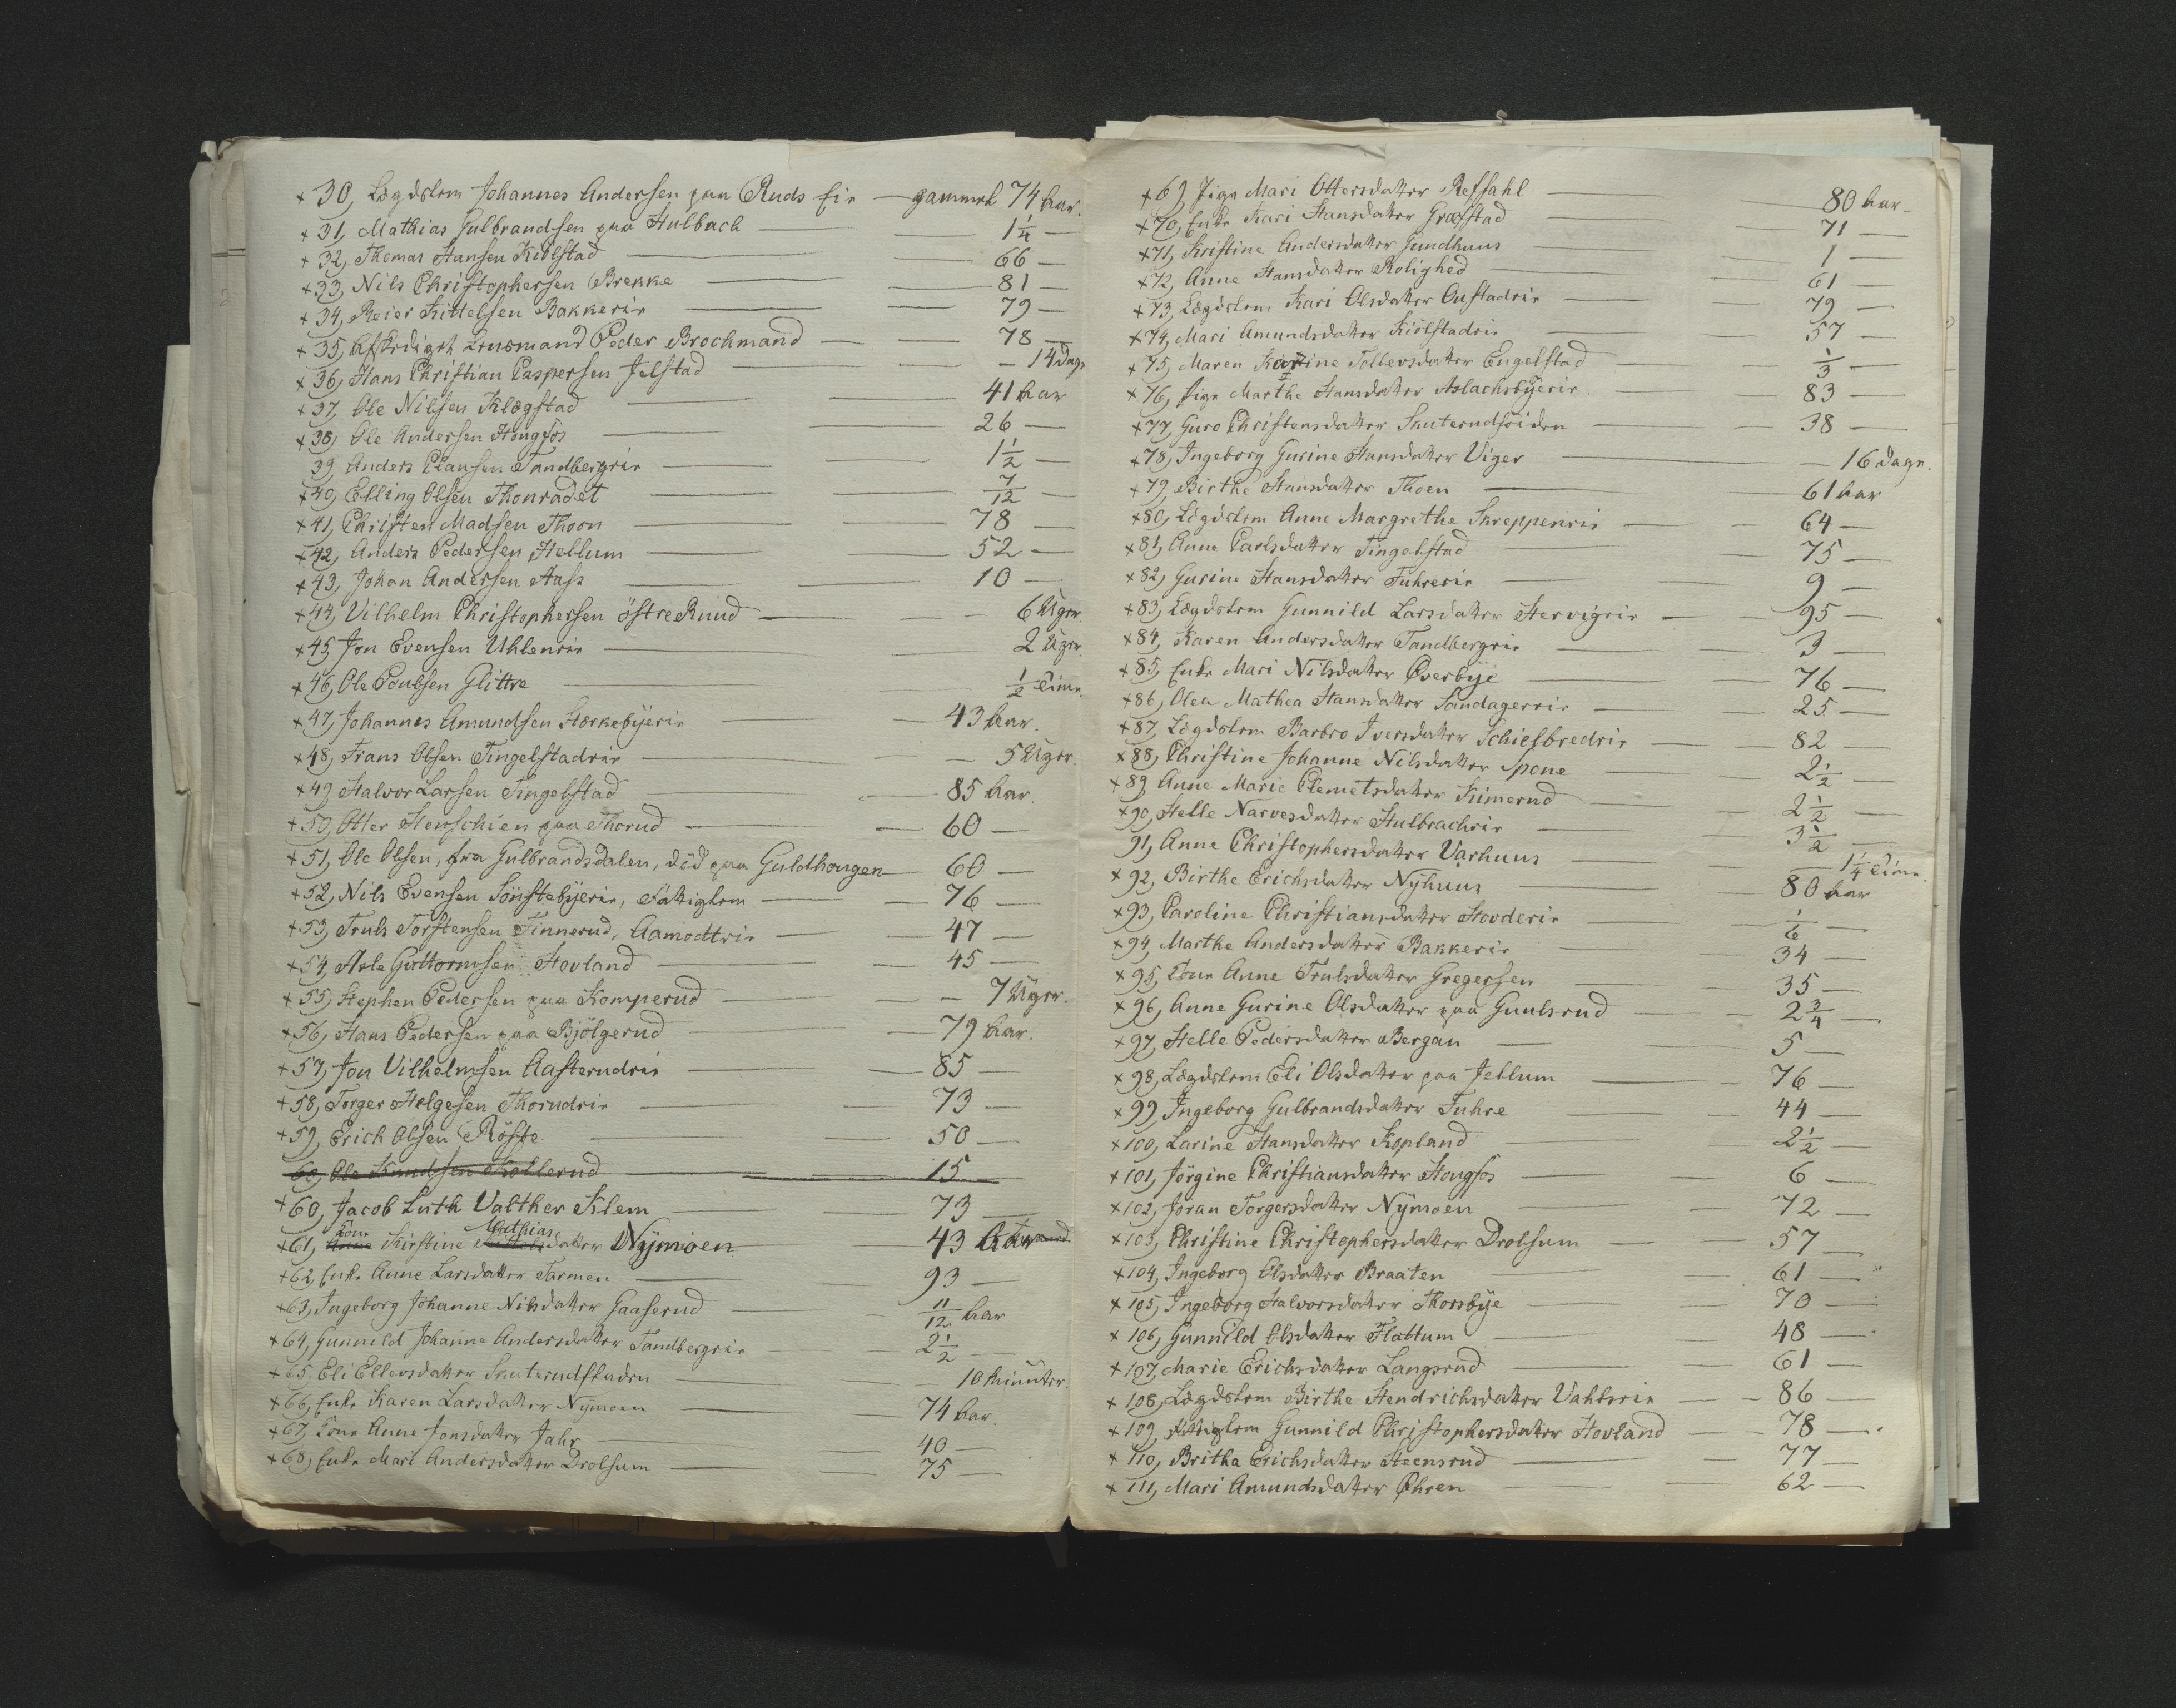 + 30, Lægdslem Johannes Andersen paa Ruds Eie — gammel 74 Aar.
+ 31, Mathias Gulbrandsen paa Hulbach — 1 1/4 —
+ 32, Thomas Hansen Kiölstad — 66 —
+ 33, Nils Christophersen Brekke — 81 —
+ 34, Reier Kittelsen Bakkerie — 79 —
+ 35, Afskediget Lensmand Peder Brochmand — 78 —
+ 36, Hans Christian Caspersen Jelstad — 14 Dage
+ 37, Ole Nilsen Klægstad — 41 Aar
+ 38, Ole Andersen Hougfos — 26 —
39, Anders Clausen Tandbergeie — 1 1/2 —
+ 40, Elling Olsen Thonradet — 7/12 —
+ 41, Christen Madsen Thoon — 78 —
+ 42, Anders Pedersen Hellum — 52 —
+ 43, Johan Andersen Aass — 10 —
+ 44, Vilhelm Christophersen östre Ruud — 6 Uger.
+ 45, Jon Evensen Uhleneie — 2 Uger.
+ 46, Ole Poulsen Glittre — 1/2 Time.
+ 47, Johannes Amundsen Stærkebÿeie — 43 Aar.
+ 48, Frans Olsen Tingelstadeie — 5 Uger.
+ 49, Halvor Larsen Tingelstad — 85 Aar.
+ 50, Otter Henschien paa Thorud — 60 —
+ 51, Ole Olsen, fra Gulbrandsdalen, död paa Guldhougen — 60 —
+ 52, Nils Evensen Sönstebÿeie, Fattiglem — 76 —
+ 53, Truls Torstensen Finnerud, Aamodteie — 47 —
+ 54, Asle Guttormsen Hovland — 45 —
+ 55, Stephen Pedersen paa Komperud — 7 Uger.
+ 56, Hans Pedersen paa Bjölgerud — 79 Aar.
+ 57, Jon Vilhelmsen Aasterudeie — 85 —
+ 58, Torger Helgesen Thorudeie — 73 —
+ 59, Erich Olsen Röste — 50 —
60, Ole Knudsen Kollerud — 15 —
+ 60, Jacob Luth Valther Klem — 73 —
+ 61, Kone Kirstine Mathiasdatter Nÿmoen — 43 Aar
+ 62, Enke Anne Larsdatter Tarmen — 93 —
+ 63, Ingeborg Johanne Nilsdatter Gaaserud — 11/12 Aar
+ 64, Gunnild Johanne Andersdatter Tandbergeie — 2 1/2 —
+ 65, Eli Ellevsdatter Skuterudfladen — 10 Minuter.
+ 66, Enke Karen Larsdatter Nÿmoen — 74 Aar.
+ 67, Kone Anne Jonsdatter Jahr — 40 —
+ 68, Enke Mari Andersdatter Drolsum — 75 —
+ 69, Pige Mari Ottersdatter Refsahl — 80 Aar —
+ 70, Enke Kari Hansdatter Græfstad — 71 —
+ 71, Kristine Andersdatter Gundhuus — 1 —
+ 72, Anne Hansdatter Rolighed — 61 —
+ 73, Lægdslem Kari Olsdatter Onstadeie — 79 —
+ 74, Mari Amundsdatter Kiölstadeie — 57 —
+ 75, Maren Karine Tollevsdatter Engelstad — 1/3 —
+ 76, Pige Marthe Hansdatter Aslachsbÿeie — 83 —
+ 77, Guro Christensdatter Skuterudsöiden — 38 —
+ 78, Ingeborg Gurine Hansdatter Viger — 16 Dage.
+ 79, Birthe Hansdatter Thoen — 61 Aar
+ 80, Lægdslem Anne Margrethe Skreppeneie — 64 —
+ 81, Anne Carlsdatter Tingelstad — 75 —
+ 82, Gurine Hansdatter Fuhreeie — 9 —
+ 83, Lægdslem Gunnild Larsdatter Hervigeie — 95 —
+ 84, Karen Andersdatter Tandbergeie — 3 —
+ 85, Enke Mari Nilsdatter Overbÿe — 76 —
+ 86, Olea Mathea Hansdatter Sandagereie — 25 —
+ 87, Lægdslem Barbro Iversdatter Schielbredeie — 82
+ 88, Christine Johanne Nilsdatter Spone — 2 1/2 —
+ 89, Anne Marie Clemetsdatter Kimerud — 2 1/2 —
+ 90, Helle Narvesdatter Hulbracheie — 3 1/2 —
91, Anne Christophersdatter Varhuus — 1 1/4 Time.
+ 92, Birthe Erichsdatter Nÿhuus — 80 Aar
+ 93, Caroline Christiansdatter Hovdeeie — 1/6 —
+ 94, Marthe Andersdatter Bakkeeie — 34 —
+ 95, Kone Anne Trulsdatter Gregersen — 35 —
+ 96, Anne Gurine Olsdatter paa Guulsrud — 2 3/4 —
+ 97, Helle Pedersdatter Bergan — 5 —
+ 98, Lægdslem Eli Olsdatter paa Jellum — 76 —
+ 99, Ingeborg Gulbrandsdatter Fuhre — 44 —
+ 100, Larine Hansdatter Kopland — 2 1/2 —
+ 101, Jörgine Christiansdatter Hougfos — 6 —
+ 102, Joran Torgersdatter Nÿmoen — 72 —
+ 103, Christine Christophersdatter Drolsum — 57 —
+ 104, Ingeborg Olsdatter Braaten — 61 —
+ 105, Ingeborg Halvorsdatter Thorsbÿe — 70 —
+ 106, Gunnild Olsdatter Flattum — 48 —
+ 107, Marie Erichsdatter Langerud — 61 —
+ 108, Lægdslem Birthe Hendrichsdatter Vahlseie — 86 —
+ 109, Fattiglem Gunnild Christophersdatter Hovland — 78 —
+ 110, Britha Erichsdatter Steensrud — 77 —
+ 111, Mari Amundsdatter Øhren — 62 —